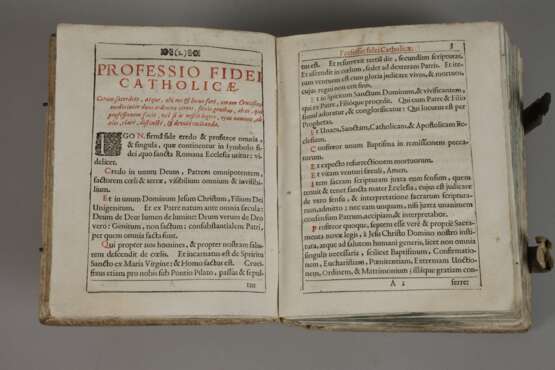 (2.)
PROFESSIO FIDEI
CATHOLICÆ
EGO N. firma fide credo & profiteor omnia,
& singula, quæ continentur in symbolo fi-
dei, quo sancta Romana Ecclesia utitur: vi-
delicet.
Credo in unum Deum, Patrem omnipotentem,
factorem cœli & terræ, visibilium omnium & invisibi-
lium.
Et in unum Dominum Jesum Christum, Filium Dei
Unigenitum. Et ex Patre natum ante omnia sæcula:
Deum de Deo: lumen de lumine: Deum verum de Deo
vero: Genitum, non factum: consubstantialem Patri,
per quem omnia facta sunt.
Qui propter nos homines, & propter nostram salu-
tem descendit de cœlis. Et incarnatus est de Spiritu
Sancto ex Maria Virgine: & Homo factus est. Cruci-
fixus etiam pro nobis sub Pontio Pilato, passus & sepul-
tus
Professio fidei Catholicæ. 3
tus est. Et resurrexit tertiâ die, secundùm scripturas.
Et ascendit in cœlum, sedet ad dexteram Patris. Et ite-
rum venturus est cum gloria judicare vivos, & mortuos,
cujus regni non erit finis.
Et in Spiritum Sanctum, Dominum, & vivificantem,
qui ex Patre, Filioque procedit. Qui cum Patre & Filio
simul adoratur, & conglorificatur: Qui locutus est per
Prophetas.
Et Unam, Sanctam, Catholicam, & Apostolicam Ec-
clesiam.
Confiteor unum Baptisma in remissionem pecca-
torum.
Et expecto resurrectionem mortuorum.
Et vitam venturi sæculi, Amen.
Item sacram scripturam juxta eum sensum, quem
tenuit & tenet sancta mater Ecclesia, cujus est judicare
de vero sensu, & interpretatione sacrarum scriptu-
rarum, admitto: nec eam unquam, nisi juxta unanimem
consensum Patrum, accipiam, & interpretabor.
Profiteor quoque, septem esse verè & propriè Sacra-
menta novæ legis, à Jesu Christo Domino nostro insti-
tuta, atque ad salutem humani generis, licet non omnia
singulis necessaria, scilicet Baptismum, Confirmatio-
nem, Eucharistiam, Pœnitentiam, Extremam Unctio-
nem, Ordinem, & Matrimonium; illaque gratiam con-
A 2 ferre: